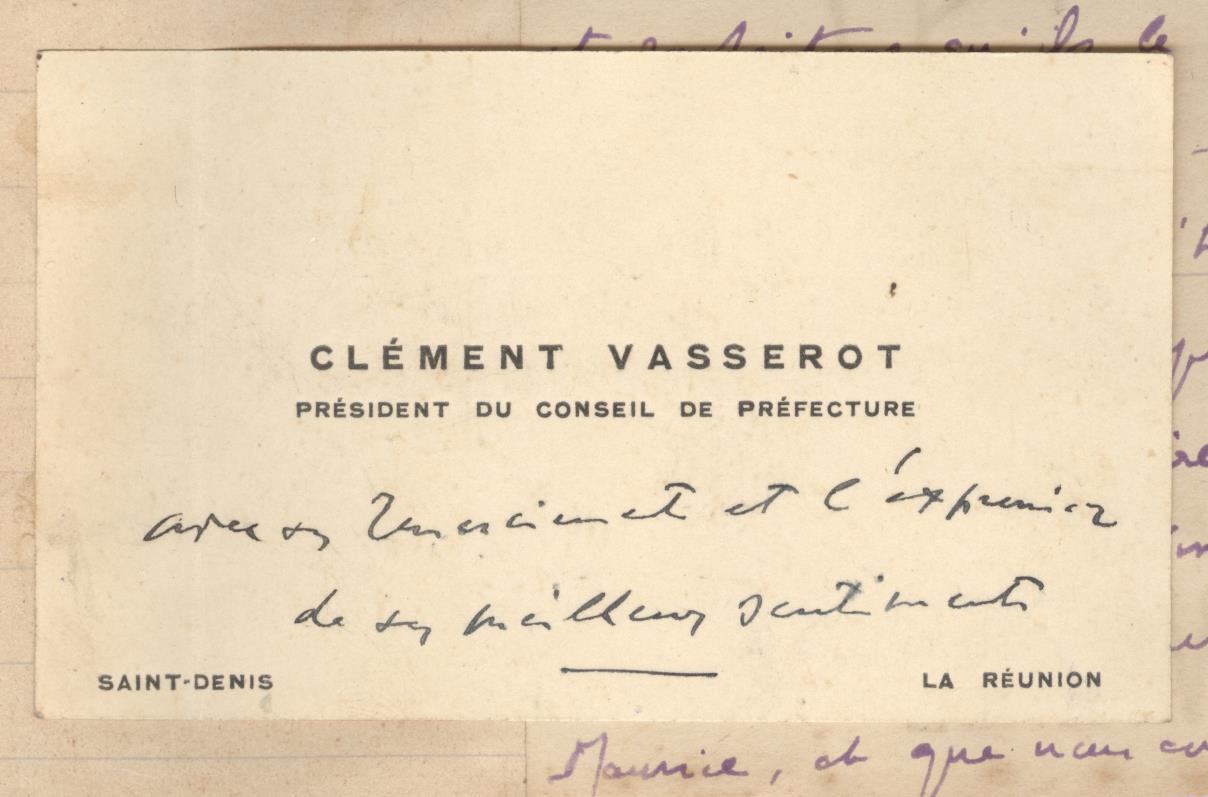 qu'ils le
CLÉMENT VASSEROT
PRÉSIDENT DU CONSEIL DE PRÉFECTURE
avec ses remerciements et l'expression
de ses meilleurs sentiments
SAINT-DENIS LA RÉUNION
Maurice, et que nous